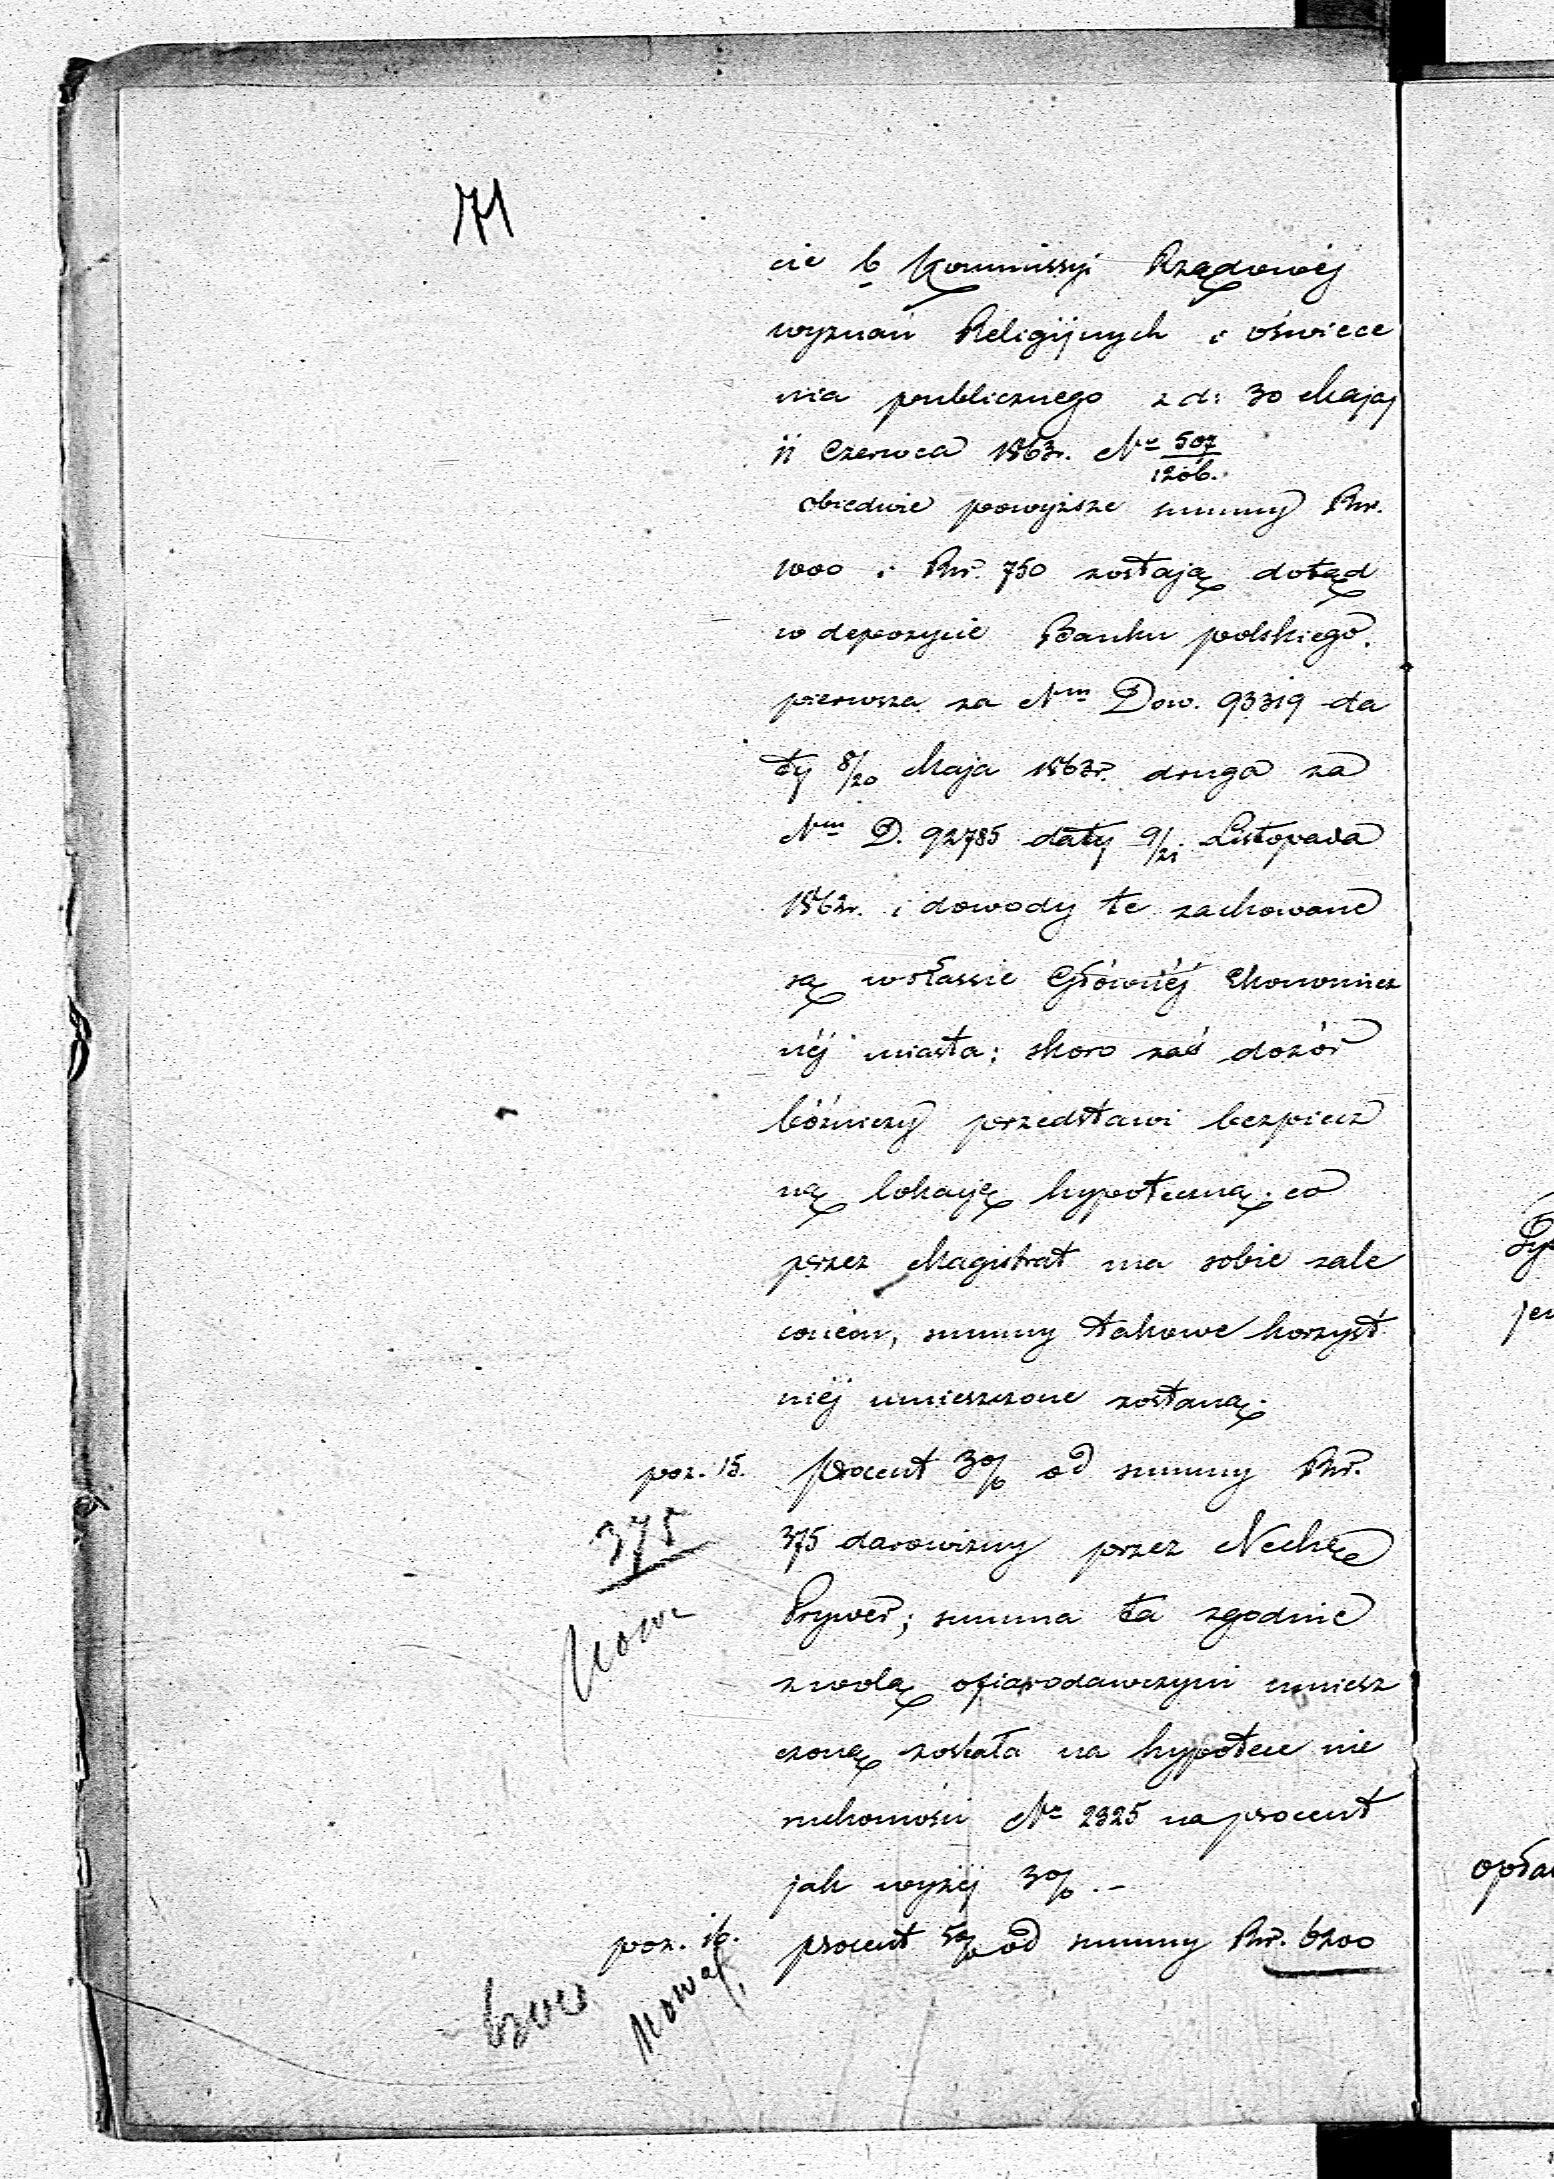 71
cie b Kommissyi Rządowéj
wyznań Religijnych i oświece
nia publicznego z d: 30 Maja/
11 Czerwca 1863r. Nr 507/1206.
obiedwie powyższe summy Rsr.
1000 i Rsr. 750 zostają dotąd
w depozycie Banku polskiego.
pierwsza za Nm Dow. 93319 da
ty 8/20 Maja 1863r. druga za
Nm D. 92785 daty 9/21 Listopada
1862r. i dowody te zachowane
są w Kassie Głównéj Ekonomicz
néj miasta; skoro zaś dozór
bóźniczy przedstawi bezpiecz
ną lokacyę hypoteczną, co
przez Magistrat ma sobie zale
conem, summy takowe korzyst
niéj umieszczone zostaną.
poz. 15. procent 3% od summy Rsr.
375
375 darowizny przez Nechę
Prywes; summa ta zgodnie
Nowa
z wolą ofiarodawczyni umiesz
czoną została na hypotece nie
ruchomości Nr 2325 na procent
jak wyżéj 3%.-
poz. 16. procent 5% od summy Rsr. 6200
6200 Nowa
opła